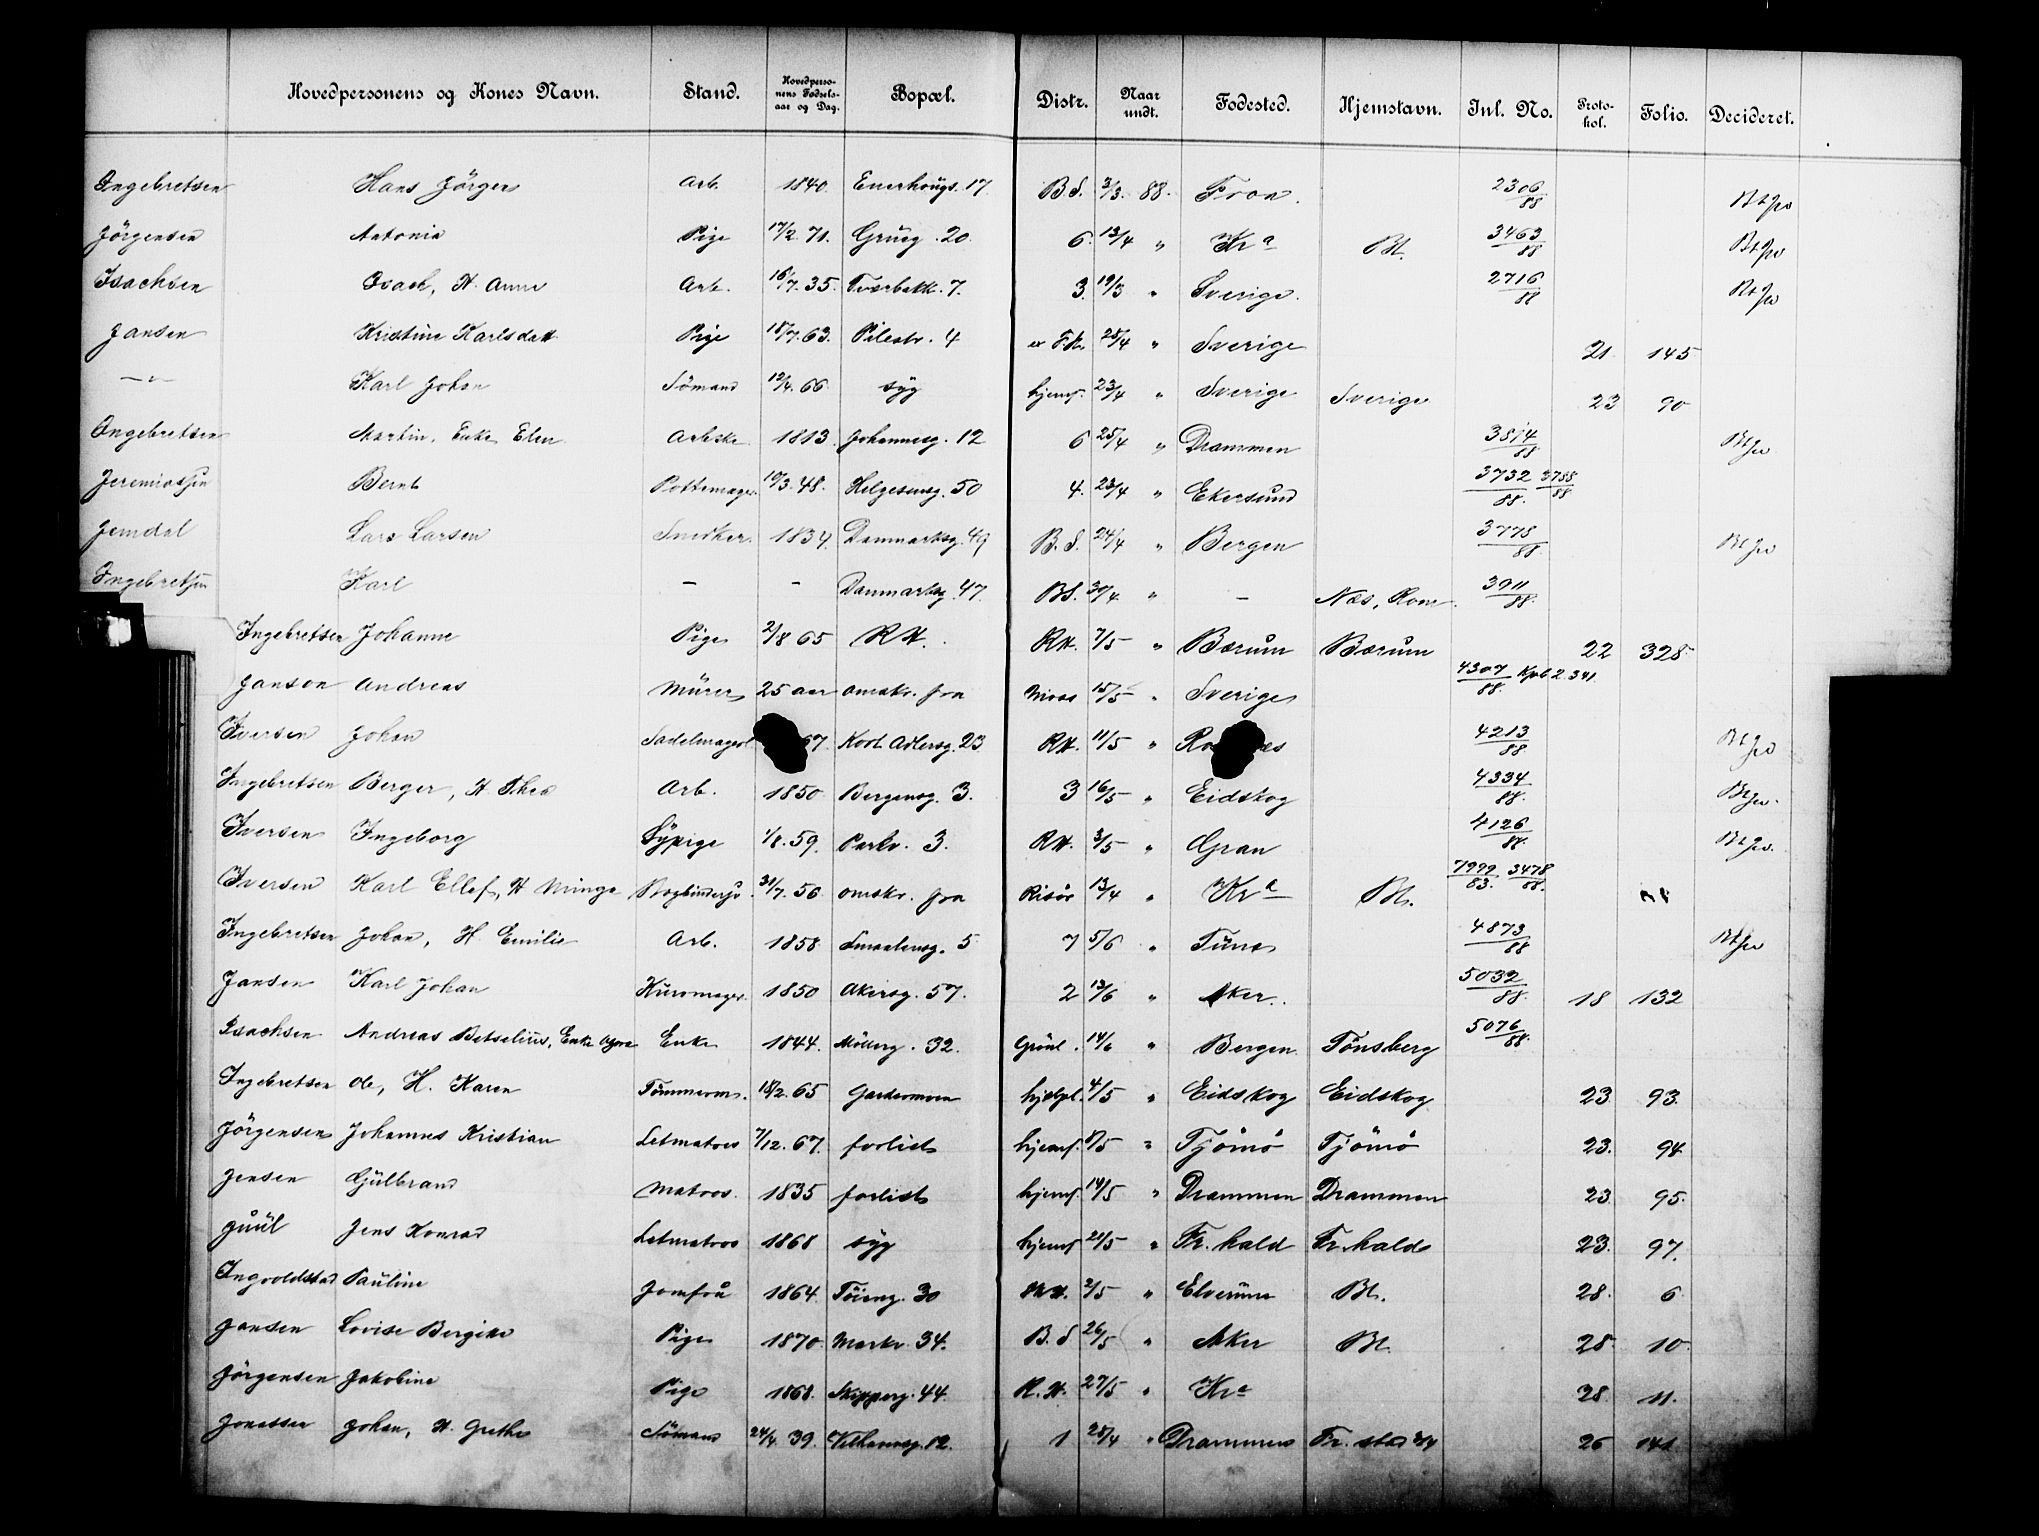 Hovedpersonens og Kones Navn. Stand. Hovedpersonens Fødselsaar og Dag. Bopæl. Distr. Naar undt. Fødested. Hjemstavn. Jnl. No. Protokol. Folio. Decideret.
Ingebretsen Hans Jörgen Arb. 1840. Enerhaugs. 17. B.S. 3/3. 88. Fron. 2306/88
Jörgensen Antonia Pige 17/2 71. Grüeg. 20. 6. 13/4 " Kra Bl. 3463/88
Isachsen Isach, H. Anne Arb. 16/7. 35. Tværbakk. 7. 3. 19/3 " Sverige. 2716/88
Jansen Kristine Karlsdatt Pige 18/7. 63. Pilestr. 4 25/4 " Sverige 21. 145
—"— Karl Johan Sömand 12/4. 66 syg hjemf. 23/4 " Sverige Sverige 23 90
Ingebretsen Martin, Enke Elen Arbske 1813. Johannesg. 12 6 25/4 " Drammen 3814/88
Jeremiassen Bernt Pottemager 19/3. 48. Helgesensg. 50 4. 23/4 " Ekersund 3732/88 3788/88
Jemdal Lars Larsen Snedker. 1834. Danmarksg. 49 B.S. 24/4 " Bergen 3778/88
Ingebretsen Karl — — Danmarksg. 47. BS. 30/4 " — Næs, Rom. 3911/88.
Ingebretsen Johanne Pige 2/8 65 RH. RH. 7/5 " Bærum Bærum 22 328
Janson Andreas Mürer 25 aar omskr. fra Moss 15/5 " Sverige 4307/88. 341
Iversen Johan Sadelmagerl 67. Kort Adlersg. 23 RH. 11/5 " 4213/88
Ingebretsen Berger, H Thea Arb. 1850 Bergensg. 3. 3 16/5 " Eidskog 4334/88.
Iversen Ingeborg Sypige 1/8. 59. Parkv. 3. RH. 3/5 " Gran 4126/88.
Iversen Karl Ellef, H Minge Bogbindersv. 31/7. 56 omskr. fra Risör 13/4 " Kra Bl. 7999/83. 3478/88.
Ingebretsen Johan, H. Emilie Arb. 1858 Smaalensg. 5 7 5/6 " Tüne 4873/88
Jansen Karl Johan Kürvmager 1850 Akersg. 57. 2 13/6 " Aker. 5032/88. 18 132
Isachsen Andreas Betselius, Enke Enke 1844. Möllerg. 32. Grönl. 14/6 " Bergen Tönsberg 5076/88.
Ingebretsen Ole, H. Karen Tömmerm. 18/2. 65 Gardermoen hjelpl. 4/5 " Eidskog Eidskog 23 93.
Jörgensen Johannes Kristian Letmatros 7/12. 67. forlist hjemf. 8/5 " Tjömö Tjömö 23. 94
Jensen Gülbrand Matros. 1835 forlist hjemf. 14/5 " Drammen Drammen 23 95.
Juül Jens Konrad Letmatros 1868 syg hjemf 21/5 " Fr. hald Fr. hald 23. 97.
Ingvoldstad Pauline Jomfru 1864. Töieng. 30 RH. 2/5 " Elverüm Bl. 28. 6
Jansen Lovise Bergitte Pige 1870 Markv. 34. B.S 26/5 " Aker Bl. 28. 10.
Jörgensen Jakobine Pige 1868. Skipperg. 44. R.H. 27/5 " Kra 28. 11.
Jonassen Johan, H. Grethe Sömand 24/4 39. Vilhelmsg. 12. 1 25/4 " Drammen Fr. stad 26 141